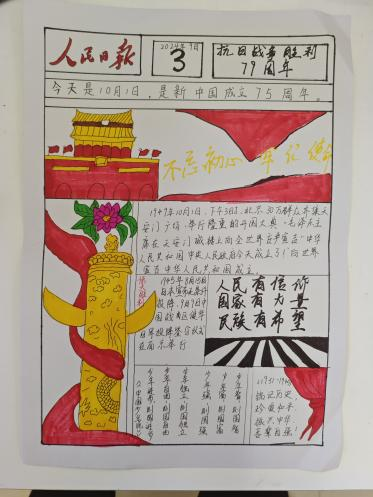 人民日报
2024年9月
3
抗日战争胜利
79周年
今天是10月1日,是新中国成立75周年。
不忘初心 牢记使
1949年10月1日,下午3时,北京30万群众齐集天
安门广场,举行隆重的开国大典。毛泽东主
席在天安门城楼上向全世界庄严宣告"中华
人民共和国中央人民政府今天成立了!"向世界
宣告中华人民共和国成立。
1945年8月15日
日本宣布无条件
投降,9月9日中
日军投降签字仪式
在南京举行
人民有信仰
国家有力量
民族有希望
少年智,则国智
少年富,则国富
少年强,则国强
少年独立,则国独立
少年自由,则国自由
少年进步,则国进步
《少年中国说》
铭记历史,
珍爱和平,
振兴中华,
吾辈自强!